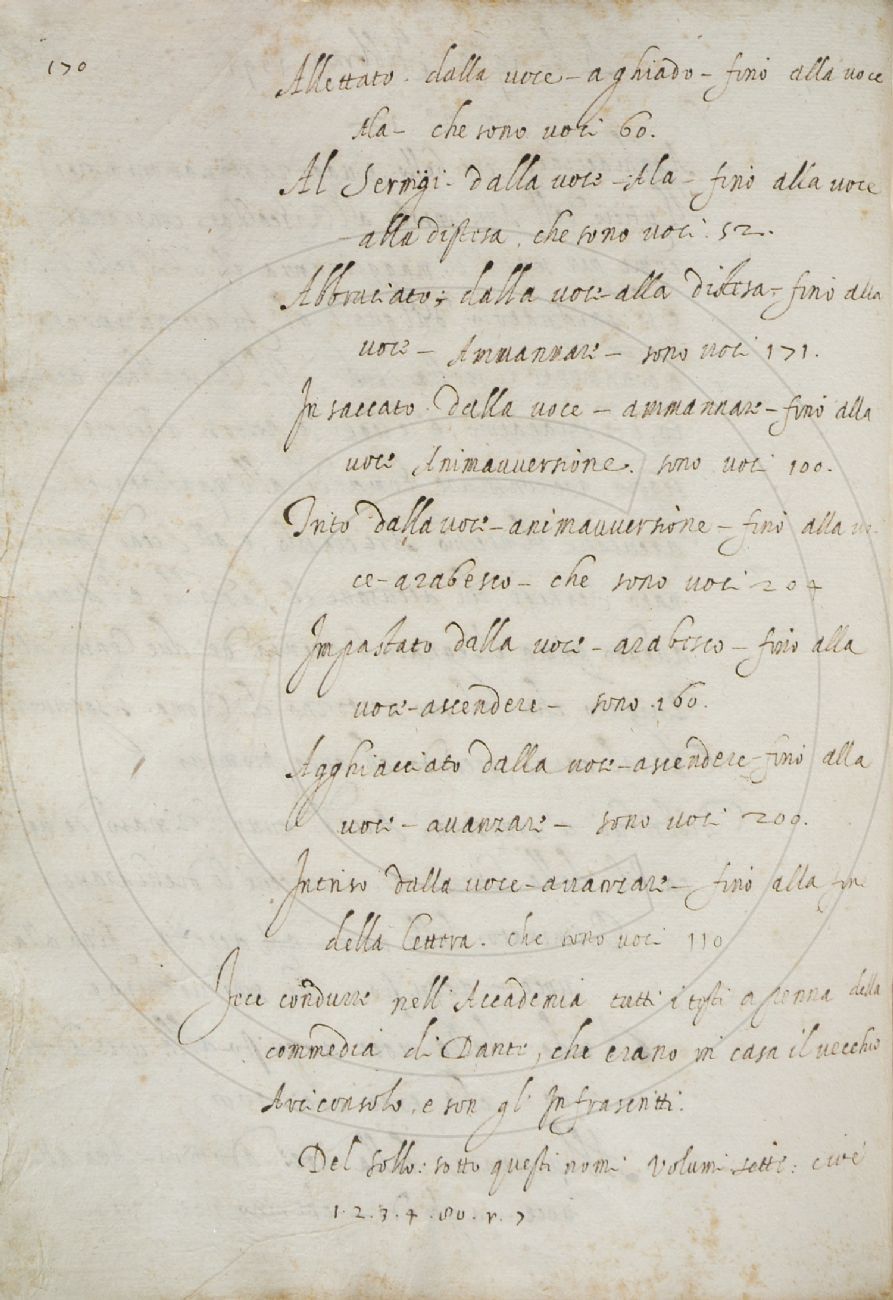 170
Allettato. dalla voce - aghiado - fino alla voce
Ala - che sono voci 60.
Al Sernigi. dalla voce - Ala - fino alla voce
alla distesa. che sono voci. 52.
Abbruciato; dalla voce alla distesa - fino alla
voce - Ammannare - sono voci 171.
Insaccato. dalla voce - ammannare - fino alla
voce Animavversione. sono voci 100.
Trito dalla voce - animavversione - fino alla vo-
ce - arabesco - che sono voci 204
Impastato dalla voce - arabesco - fino alla
voce - ascendere - sono. 160.
Agghiacciato dalla voce - ascendere - fino alla
voce - avanzare - sono voci 200.
Intriso dalla voce - avanzare - fino alla fine
della lettera. che sono voci 110
Fece condurre nell'Accademia tutti i testi a penna della
commedia di Dante, che erano in casa il vecchio
Arciconsolo, e son gl'Infrascritti.
Del sollo: sotto questi nomi Volumi sette: cioè
1. 2. 3. 4.